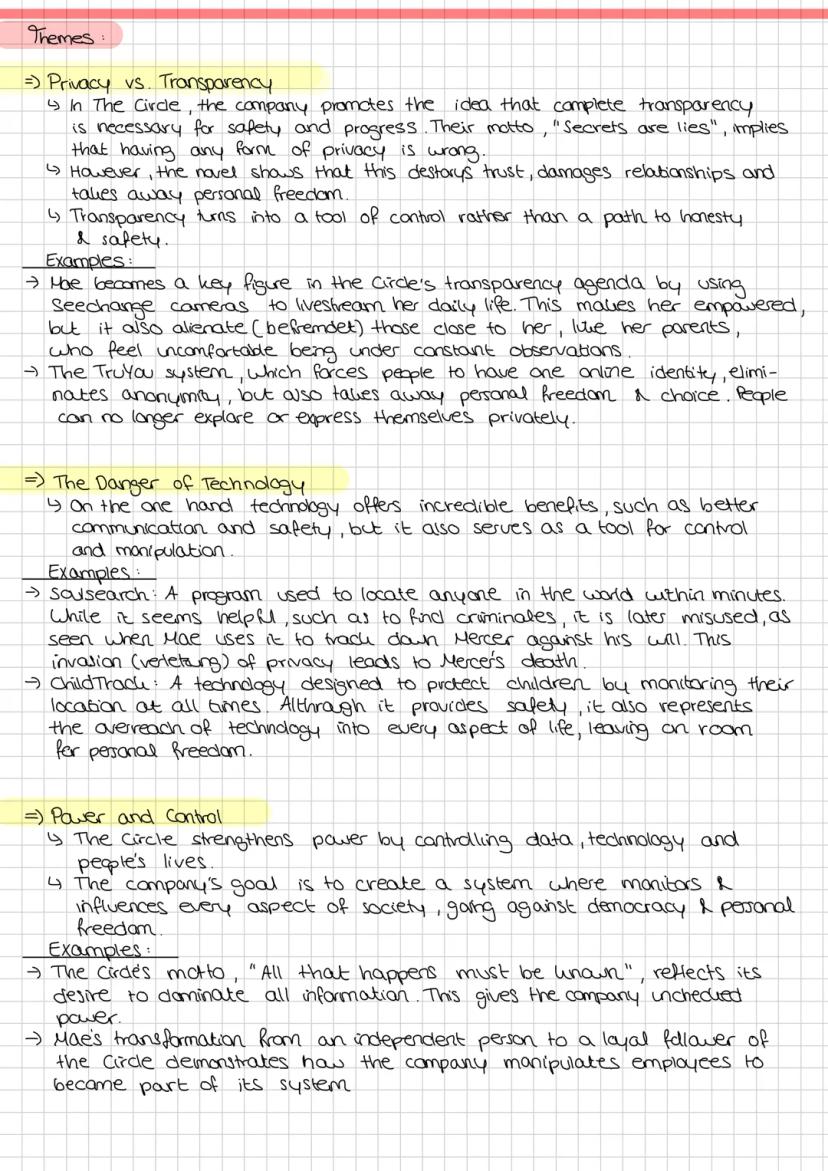 Themes :
=> Privacy vs. Transparency
↳ In The Circle, the company promotes the idea that complete transparency
is necessary for safety and progress. Their motto, "Secrets are lies", implies
that having any form of privacy is wrong.
↳ However, the novel shows that this destorys trust, damages relationships and
takes away personal freedom.
↳ Transparency turns into a tool of control rather than a path to honesty
& safety.
Examples:
→ Mae becomes a key figure in the Circle's transparency agenda by using
Seechange cameras to livestream her daily life. This makes her empowered,
but it also alienate (befremdet) those close to her, like her parents,
who feel uncomfortable being under constant observations.
→ The TruYou system, which forces people to have one online identity, elimi-
nates anonymity, but also takes away personal freedom & choice. People
can no longer explore or express themselves privately.
=> The Danger of Technology
↳ On the one hand technology offers incredible benefits, such as better
communication and safety, but it also serves as a tool for control
and manipulation.
Examples:
→ Soulsearch: A program used to locate anyone in the world within minutes.
While it seems helpful, such as to find criminales, it is later misused, as
seen when Mae uses it to track down Mercer against his will. This
invasion (verletzung) of privacy leads to Mercer's death.
→ ChildTrack: A technology designed to protect children by monitoring their
location at all times. Although it provides safety, it also represents
the overreach of technology into every aspect of life, leaving on room
for pesonal freedom.
=> Power and Control
↳ The Circle strengthens power by controlling data, technology and
people's lives.
↳ The company's goal is to create a system where monitors &
influences every aspect of society, going against democracy & personal
freedom.
Examples:
→ The Circle's motto, "All that happens must be known", reflects its
desire to dominate all information. This gives the company unchecked
power.
→ Mae's transformation from an independent person to a loyal follower of
the Circle demonstrates how the company manipulates employees to
become part of its system